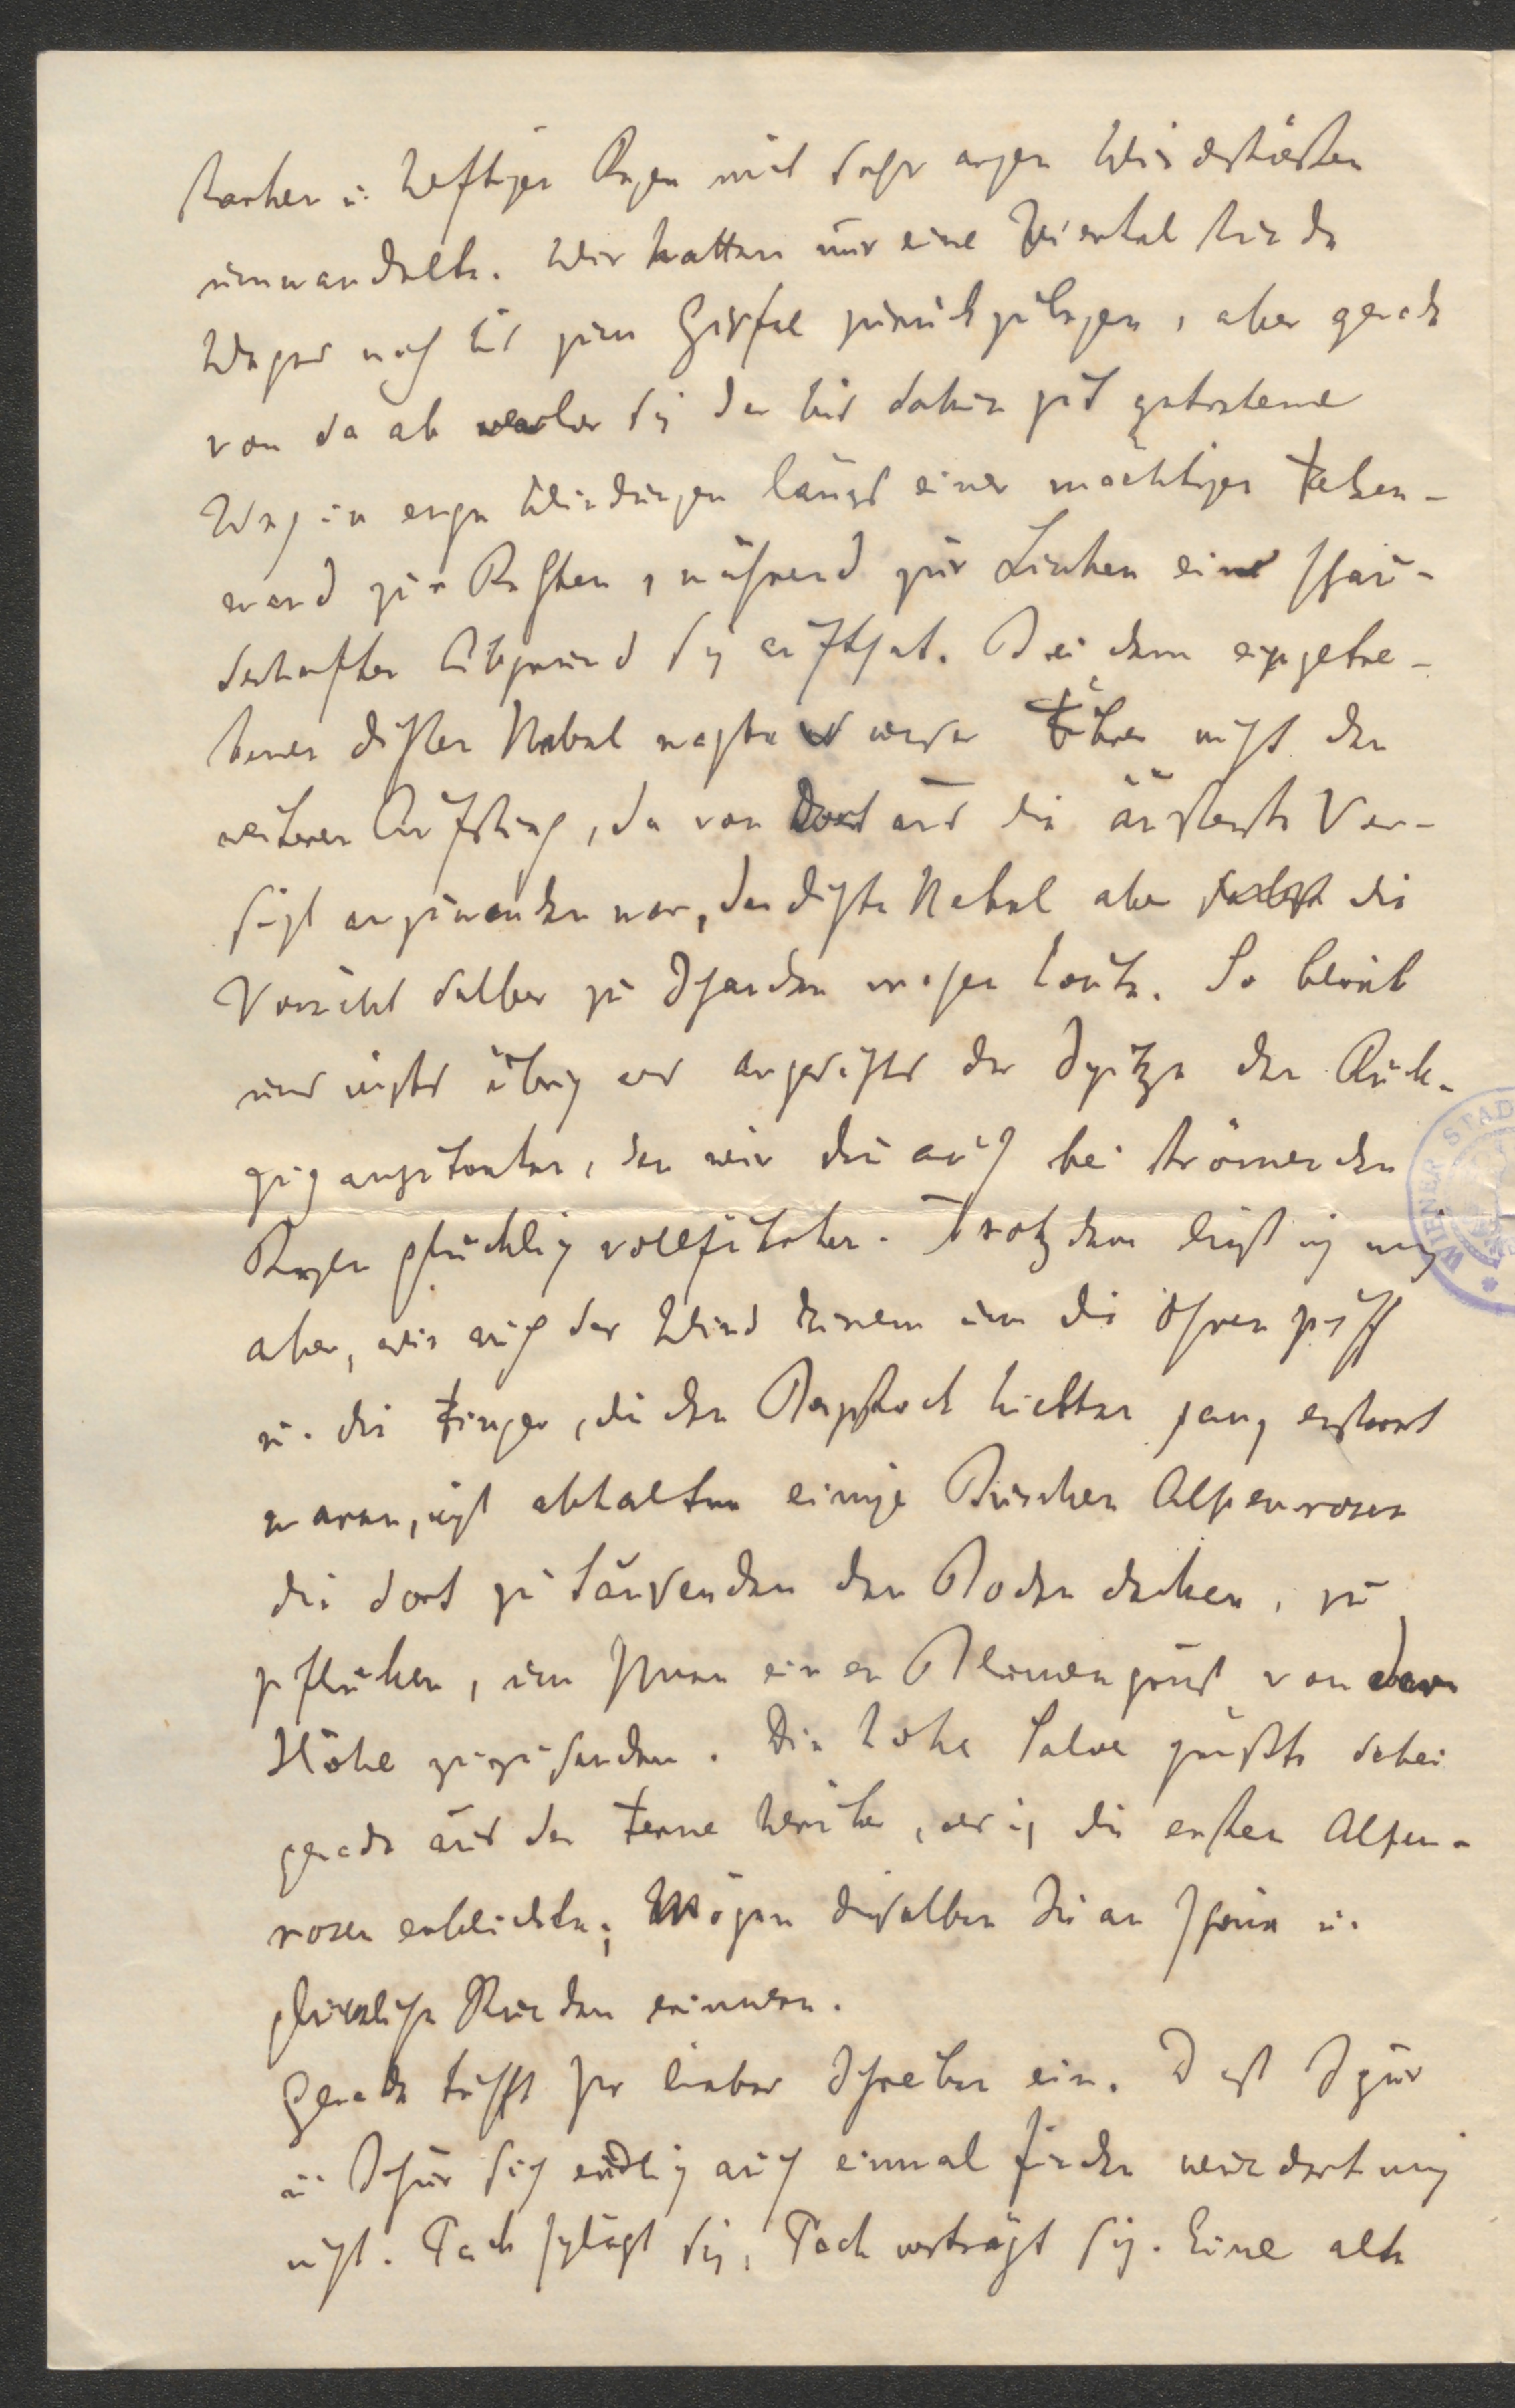 starken u. heftigen Regen mit sehr argen Windstößen
umwandelte. Wir hatten nur eine Viertel Stunde
Weges noch bis zum Gipfel zurückzulegen, aber gerade
von da ab wandte sich der bis dahin gut gebotene
Weg in engen Windungen längs einer mächtigen Felsen-
wand zur Rechten, während zur Linken eine schau-
derhafter Abgrund sich aufthat. Bei dem eingetre-
tenen dichten Nebel wagte es unser Führer nicht den
weiteren Aufstieg, da von dort aus die äußerste Vor-
sicht anzuwenden war, der dichte Nebel aber selbst die
Vorsicht selber zu Schanden machen konnte. So blieb
uns nichts übrig als angesichts der Spitze den Rück-
zug anzutreten, den wir denn auch bei strömenden
Regen glücklich vollführten. Trotzdem ließ ich mich
aber, wie auch der Wind Einem um die Ohren pfiff
u. die Finger, die den Bergstock hielten ganz erstarrt
waren, nicht abhalten einige Büschen Alpenrosen
die dort zu tausenden den Boden decken, zu
pflücken, um Ihnen einen Blumengruß von der
Höhe zuzusenden. Die hohe Salve grüßte dabei
gerade aus der Ferne herüber, als ich die ersten Alpen-
rosen erblickte; Mögen dieselben Sie an schöne u.
glückliche Stunden erinnern.
Gerade trifft Ihr liebes Schreiben ein. Daß Spur
u. Schur sich endlich auch einmal finden wundert mich
nicht. Pack schlägt sich, Pack verträgt sich. Eine alte
WIENER STAD